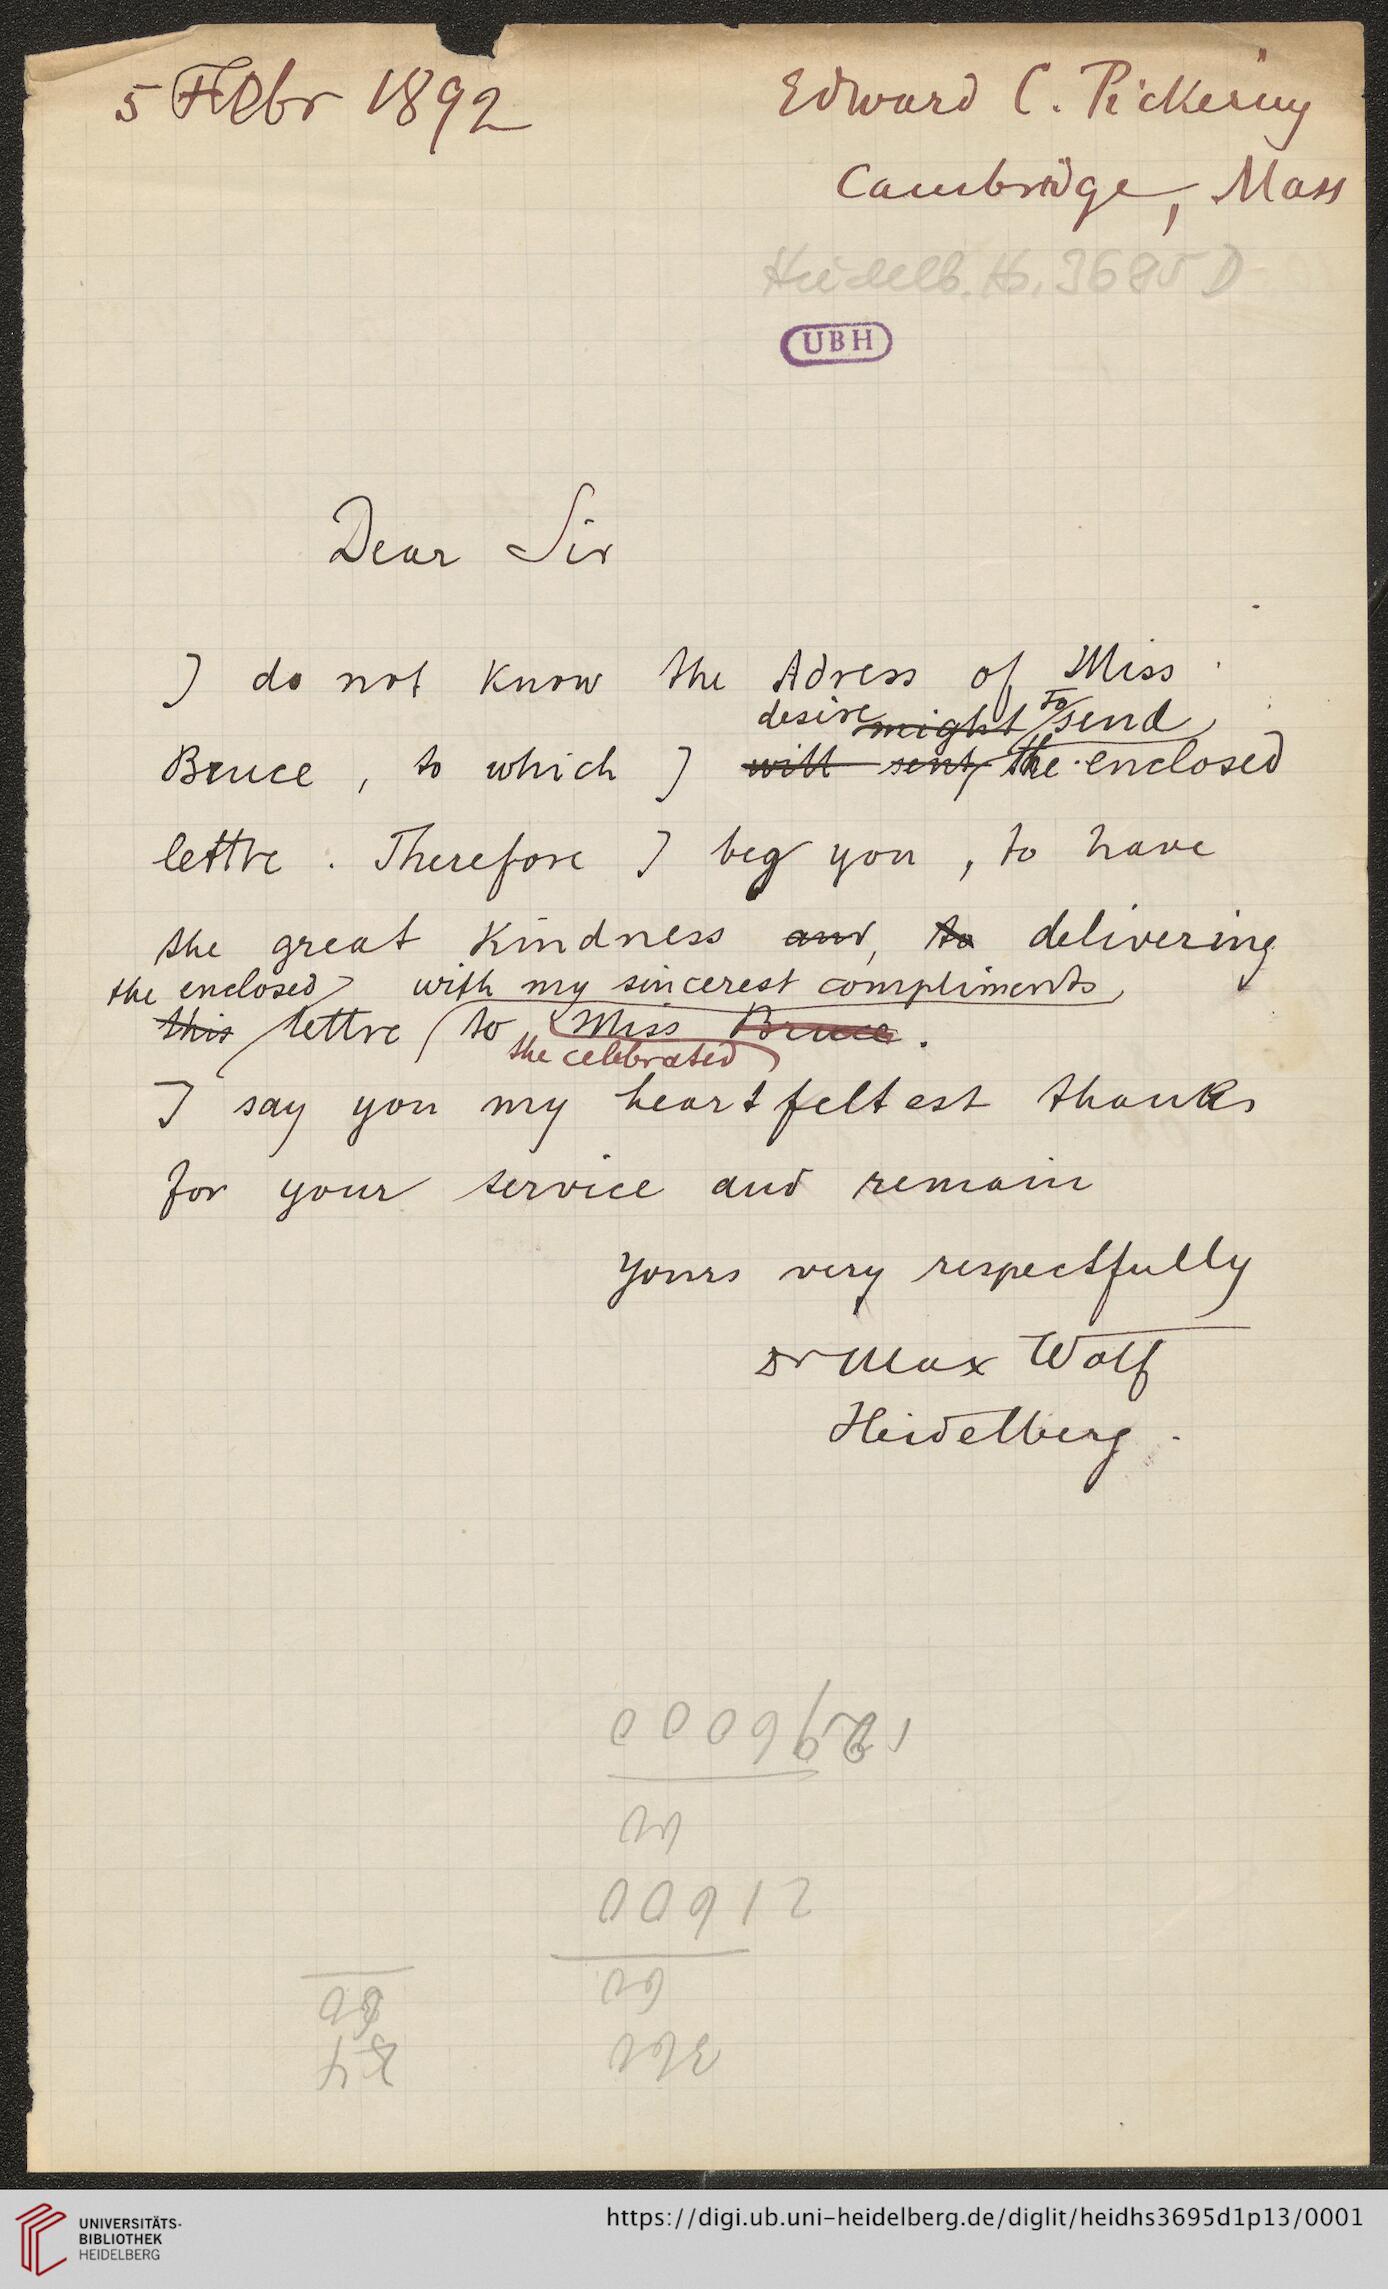 5 Febr 1892
Edward C. Pickering
Cambridge, Mass
Heidelb. Hs. 3695 D
UBH
Dear Sir
I do not know the Adress of Miss
desire might to send
Bruce, to which I will sent, the enclosed
lettre. Therefore I beg you, to have
the great kindness and, to delivering
the enclosed with my sincerest compliments
this lettre to Miss Bruce.
the celebrated
I say you my heartfeltest thanks
for your service and remain
yours very respectfully
Dr Max Wolf
Heidelberg.
UNIVERSITÄTS-
BIBLIOTHEK
HEIDELBERG
https://digi.ub.uni-heidelberg.de/diglit/heidhs3695d1p13/0001